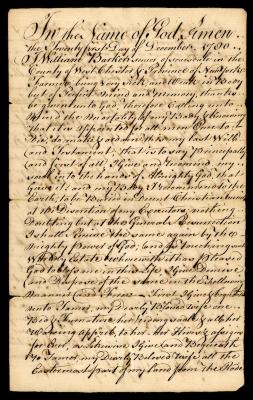 In the Name of God Amen
the Twenty first Day of December 1760
I William Barker Junier of Scarsdale in the
County of West Chester & Province of New York
Farmer being Very Sick and Weak in Body
but of Perfect Mind and Memory, thanks
be given unto God Therefore Calling unto
Mind the Mortality of my Body & knowing
that it is appointed for all men Once to
Die, do make and ordain this my last Will
and Testament, that is to say Principally
and first of all, I Give and recomend my
soul into the hands of Almighty God, that
Gave it; and my Body I Recommend to the
Earth, to be Buried in Decent Christian burial
at the Discretion of my Executors, nothing
Doubting but at the General Resurrection
I shall Receive the same again by the
Mighty power of God; and as touching such
Worldly Estate wherewith it has pleased
God to bless me in this life I Give Demise
and Dispose of the same in the following
Manner and Form. First I give & bequeath
unto my Dearly Beloved wife one
Bed & Furniture her Riding saddle & all her
Wearing apparel to her, her Heirs & assigns
for Ever, Likewise I Give and Bequeath
to my Dearly Beloved wife all the
Eastermost part of my land from the Rode